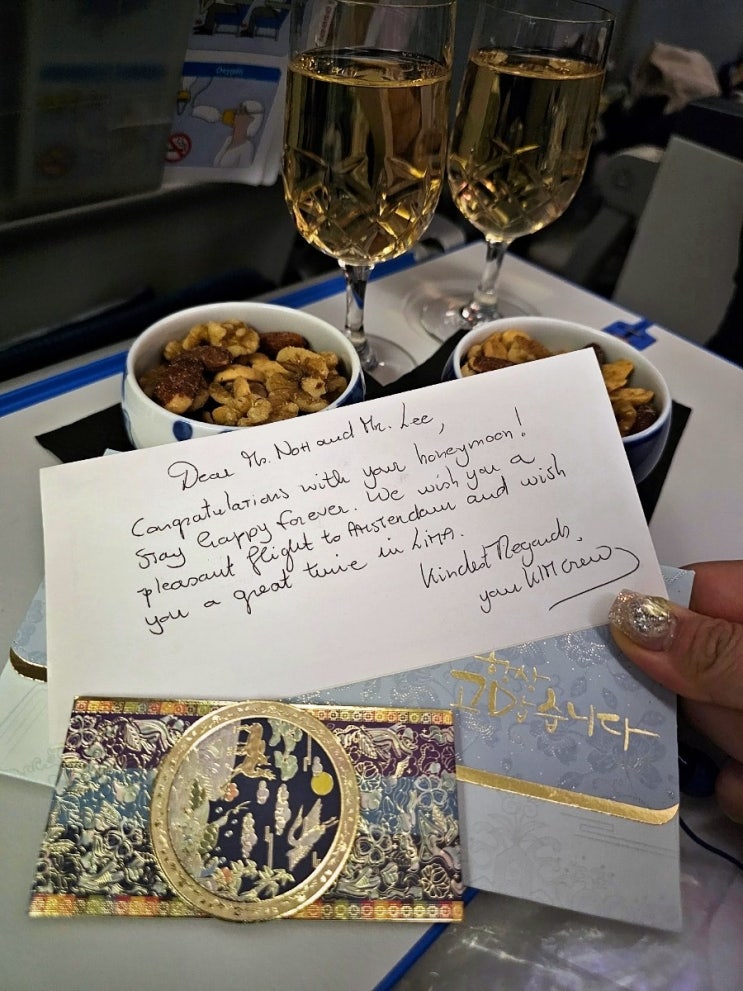 Oxygen
Dear Ms. Nott and Mr. Lee,
Congratulations with your honeymoon!
Stay happy forever. We wish you a
pleasant flight to Amsterdam and wish
you a great time in Lima.
Kindest Regards,
your KLM crew
항상
고맙습니다